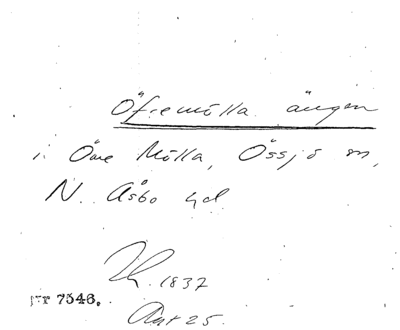 Öfremölla ängen
i Övre Mölla, Össjö sn,
N. Åsbo hd
1837
7546.
Akt 25.